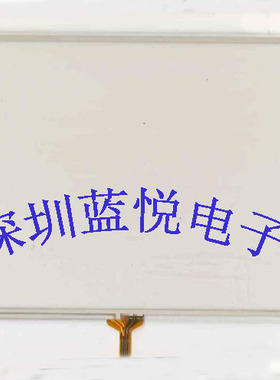 深圳蓝悦电子